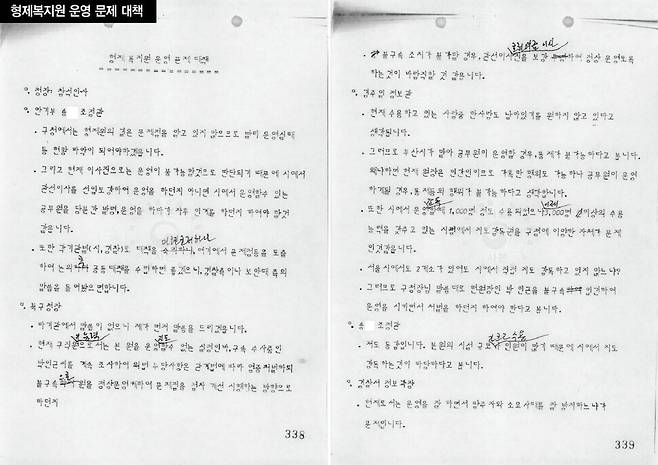 형제복지원 운영 문제 대책
형제 복지원 운영 문제 대책
○. 청장: 참석인사
○. 안기부 송 조정관
. 구청에서는 현재원의 깊은 문제점을 알고 있지 않으므로 많이 운영실태
등 현황 파악이 되어야하겠읍니다.
. 그리고 현재 이사진으로는 운영이 불가능할것으로 판단되기 때문에 시에서
관선이사를 선임도강하여 운영을 하던지 아니면 시에서 운영할수 있는
공무원을 당분간 발령, 운영을 하다가 차후 인계를 하던지 하여야 할것
같읍니다.
. 또한 각기관별(시, 경찰)로 대책을 하니, 여기에서 문제점등을 도출
하여 논의 공동대책을 수립하면 좋겠으니, 경찰측이나 보안대 측의
말씀을 들어봤으면합니다.
○. 북구청장
. 타기관에서 말씀이 없으니 제가 먼저 말씀을 드리겠읍니다.
. 현재 구 로서는 본 원을 운영할수 없는 실정인바, 구속 수사중인
박인근씨를 계속 조사하여 위법 부당사항은 관계법에 따라 엄중처벌하되
불구속 원을 정상운영케하여 문제점을 점차 개선 시행하는 방향으로
하던지
338
. 불구속 조치가 불가할 경우, 관선이사진을 보강 하여 정상 운영토록
하는것이 바람직할 것 같읍니다.
○. 김주일 정보관
. 현재 수용하고 있는 사람중 반사반도 남아있기를 원하지 않고 있다고
생각됩니다.
. 그러므로 부산시가 맡아 공무원이 운영할 경우, 통제가 불가능하다고 봅니다.
왜냐하면 현재 원장은 민간인이므로 가혹한 행위도 가능하나 공무원이 운영
하게될 경우, 통제등의 행위가 불가능 하다고 생각합니다.
. 또한 시에서 1,000명 정도 수용되었으나 3,000명 이상의 수용
능력을 갖추고 있는 시점에서 지도감독권을 구청에 이양한 자체가 문제
인것같읍니다.
. 서울시에서도 2개소가 있어도 시에서 직접 지도 감독하고 있지 않느냐?
. 그러므로 구청장님 말씀대로 현원장인 박인근을 불구속 입건하여
운영을 시키면서 처벌을 하던지 하여야 한다고 봅니다.
○. 송 조정관
. 저도 동감입니다. 본원의 시설 규모 인원이 많기 때문에 시에서 지도
감독하는것이 마땅하다고 봅니다.
○. 경찰서 정보과장
. 현재로서는 운영을 잘 하면서 탈주자와 소요사태를 잘 방지하느냐가
문제입니다.
339